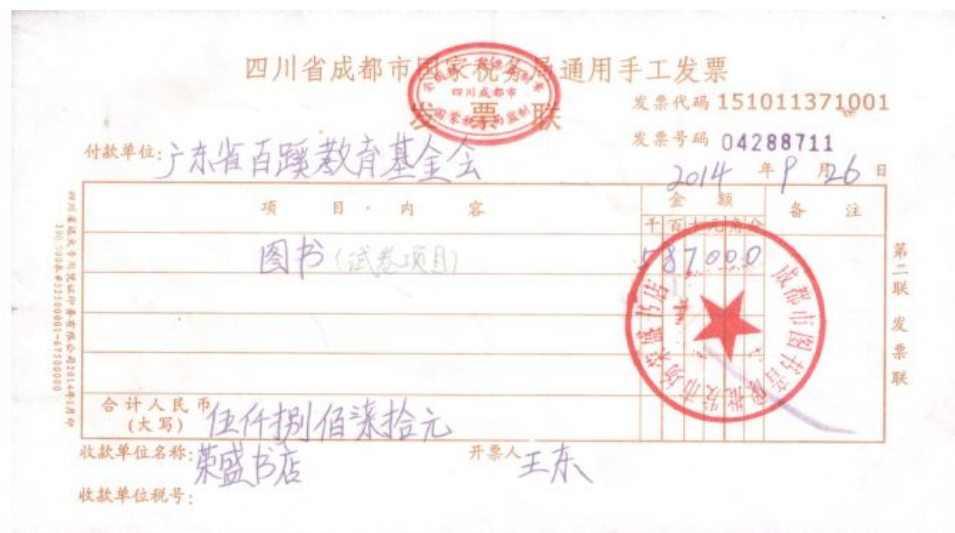 四川省成都市国家税务局通用手工发票
发票联
四川成都市
国家税务局监制
发票代码 151011371001
发票号码 04288711
付款单位:广东省百蹊教育基金会
2014 年 9 月 26 日
项目·内容 金额 备注
千百十元角分
图书(试卷项目) 587000
合计人民币(大写) 伍仟捌佰柒拾元
收款单位名称:荣盛书店 开票人 王东
收款单位税号:
第二联 发票联
成都市图书音像批发市场荣盛书店